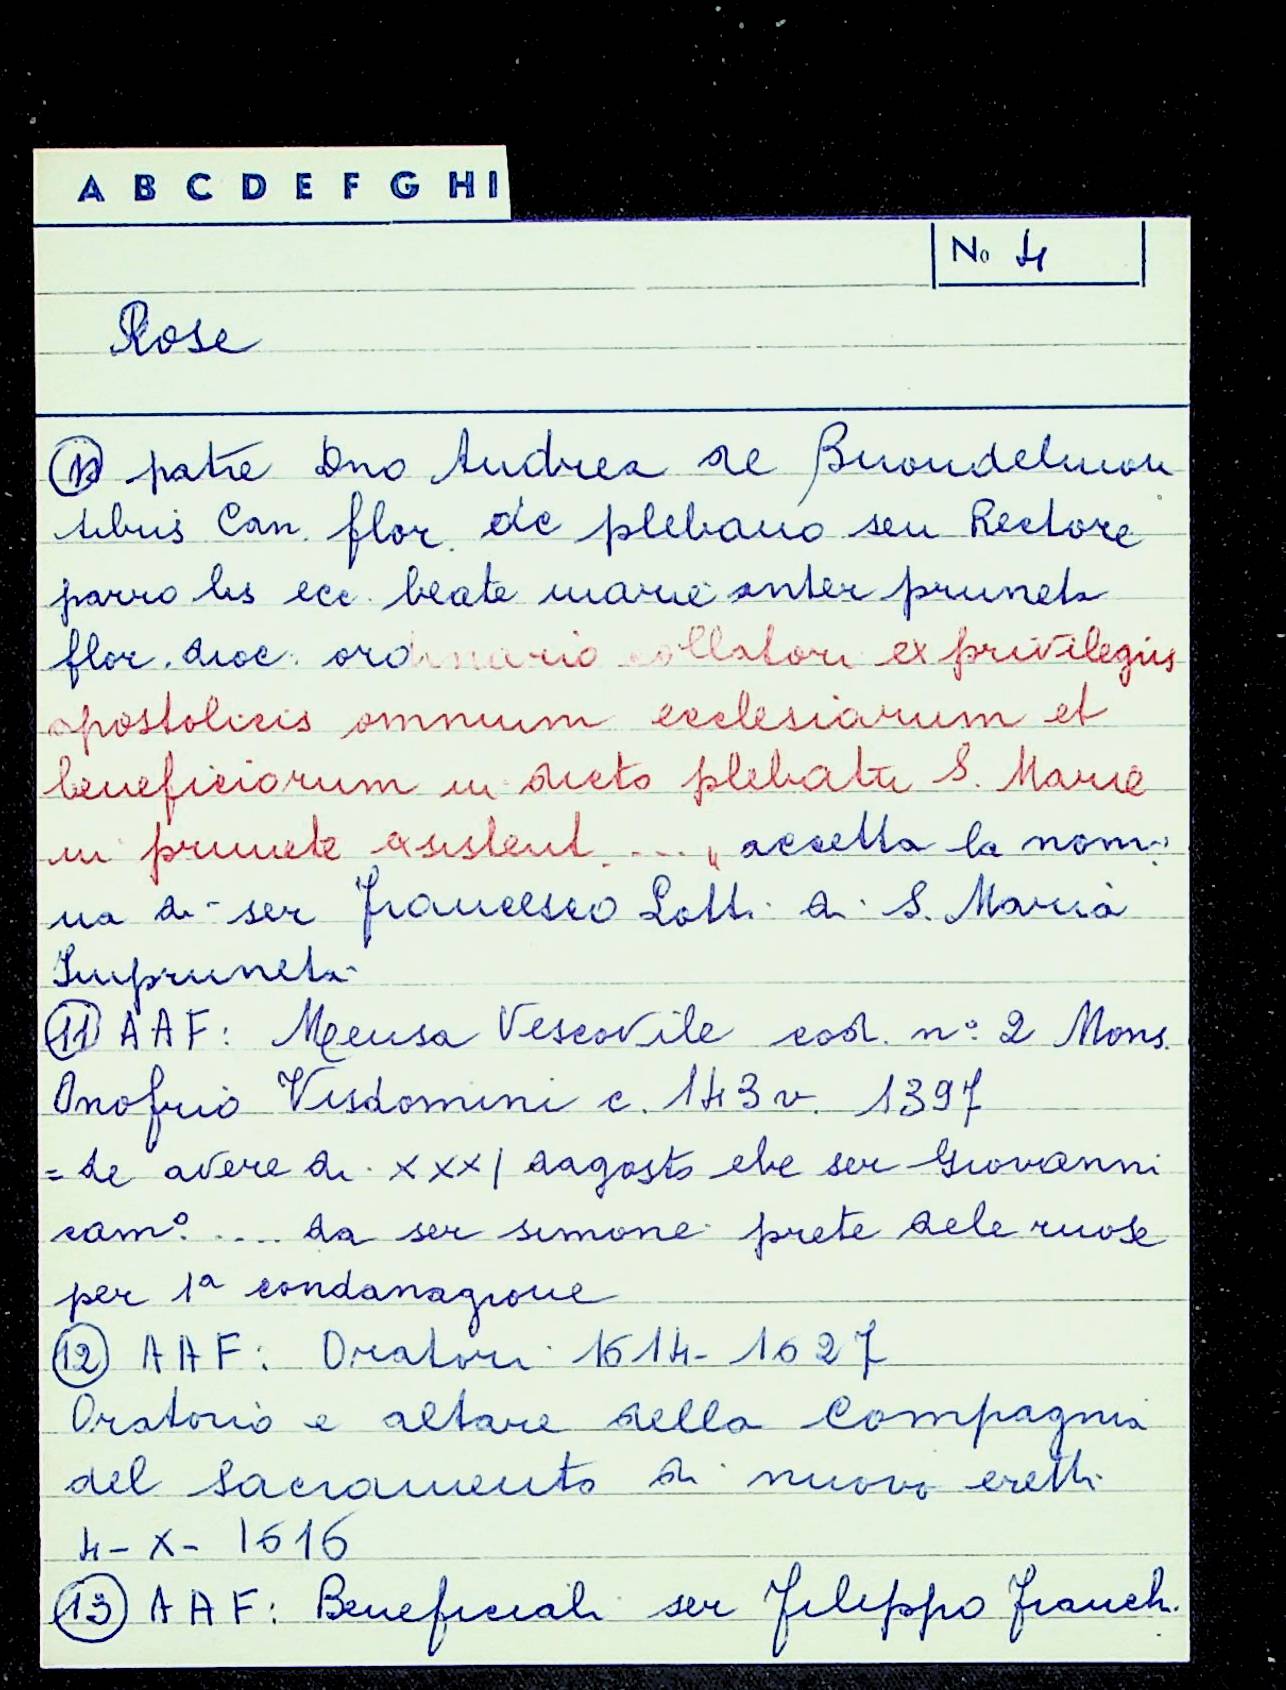 A B C D E F G H I
No 4
Rose
10 patre Dno Andrea de Buondelmon
tibus Can. flor. dc plebano seu Rectore
parro lis ecc. beate marie inter pruneta
flor. dioc. ordinario collatori ex privilegiis
apostolicis omnium ecclesiarum et
beneficiorum in dicto plebatu S. Marie
in prunete existent. ...." accetta la nomi
na di ser Francesco Lotti di S. Maria
Impruneta
11 AAF: Mensa Vescovile cod. n° 2 Mons.
Onofrio Visdomini c. 143v. 1397
= de avere di XXXI dagosto ebe ser Giovanni
cam° .... da ser simone prete dele ruose
per 1ª condanagione
12 AAF: Oratori 1614-1627
Oratorio e altare della Compagnia
del Sacramento di nuovo eretti
4-X-1616
13 AAF: Beneficiali ser Filippo Franch.